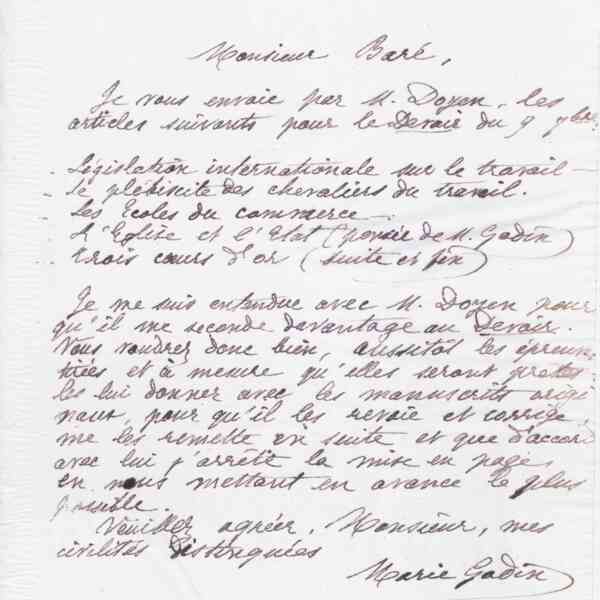 Monsieur Baré,
Je vous envoie par M. Doyen, les
articles suivants pour le Devoir du 9 7bre
Législation internationale sur le travail —
Le plébiscite des chevaliers du travail.
Les Ecoles du commerce —
L'Eglise et l'Etat (pensée de M. Godin)
Trois cœurs d'or (suite et fin)
Je me suis entendue avec M. Doyen pour
qu'il me seconde davantage au Devoir.
Vous voudrez donc bien, aussitôt les épreuves
tirées et à mesure qu'elles seront prêtes
les lui donner avec les manuscrits origi
naux, pour qu'il les revoie et corrige,
me les remette en suite et que d'accord
avec lui j'arrête la mise en pages
en nous mettant en avance le plus
possible.
Veuillez agréer, Monsieur, mes
civilités distinguées
Marie Godin